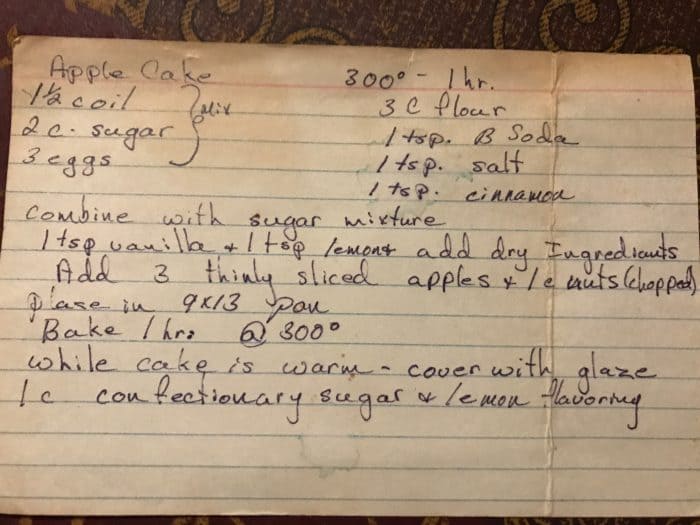 Apple Cake 300° - 1 hr.
1½ c oil } Mix 3 C flour
2 c. sugar 1 tsp. B Soda
3 eggs 1 tsp. salt
1 tsp. cinnamon
combine with sugar mixture
1 tsp vanilla + 1 tsp lemon + add dry Ingredients
Add 3 thinly sliced apples & 1 c nuts (chopped)
place in 9x13 pan
Bake 1 hr. @ 300°
while cake is warm - cover with glaze
1 c confectionary sugar & lemon flavoring